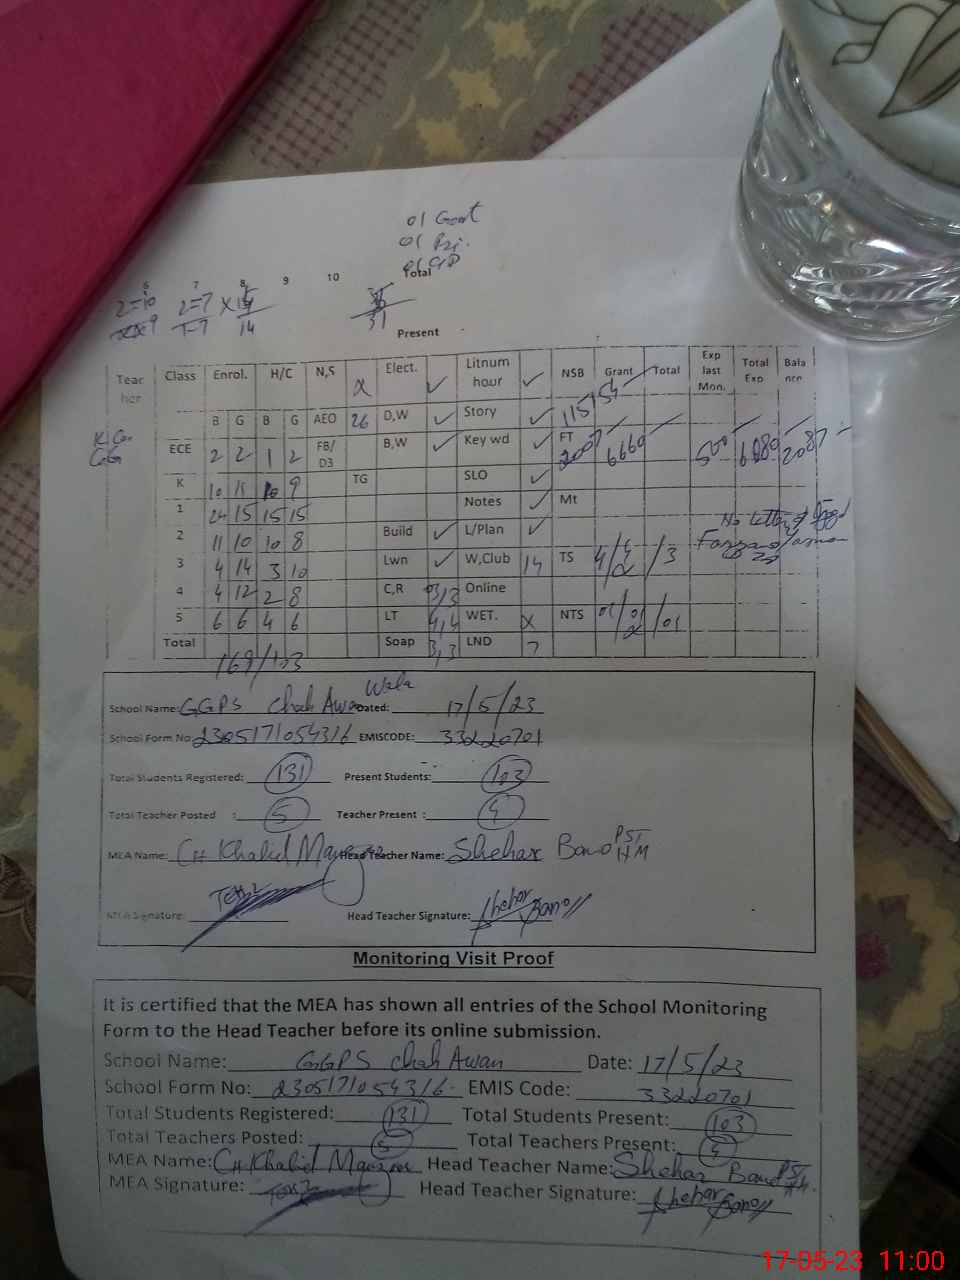 01 Govt
01
Total
6 7 8 9 10
2=10 2=7
14 31
Present
Teac her Class Enrol. H/C N,S Elect. ✓ Litnum hour ✓ NSB Grant Total Exp last Mon. Total Exp Bala nce
B G B G AEO 26 D,W ✓ Story ✓
ECE 2 2 1 2 FB/ D3 B,W ✓ Key wd ✓ FT 6660 500 2087
K 10 11 10 9 TG SLO ✓
1 24 15 15 15 Notes ✓ Mt
2 11 10 10 8 Build ✓ L/Plan ✓ No Letter
3 4 14 3 10 Lwn ✓ W,Club 14 TS 4/ /3
4 4 12 2 8 C,R 3,3 Online
5 6 6 4 6 LT 4,4 WET. x NTS 01/ /01
Total /103 Soap 3,3 LND
Wala
School Name: GGPS Chah Awan Dated: 17/5/23
School Form No: 2305171054316 EMISCODE: 33220701
Total Students Registered: 131 Present Students: 103
Total Teacher Posted : 5 Teacher Present : 4
MEA Name: CH Khalid Manzoor Head Teacher Name: Shehar Bano PST HM
MEA Signature: Head Teacher Signature: Shehar Bano
Monitoring Visit Proof
It is certified that the MEA has shown all entries of the School Monitoring
Form to the Head Teacher before its online submission.
School Name: GGPS Chah Awan Date: 17/5/23
School Form No: 23051710543/6 EMIS Code: 33220701
Total Students Registered: 131 Total Students Present: 103
Total Teachers Posted: 5 Total Teachers Present: 4
MEA Name: CH Khalid Manzoor Head Teacher Name: Shehar Bano PST
MEA Signature: Head Teacher Signature: Shehar Bano
17-05-23 11:00